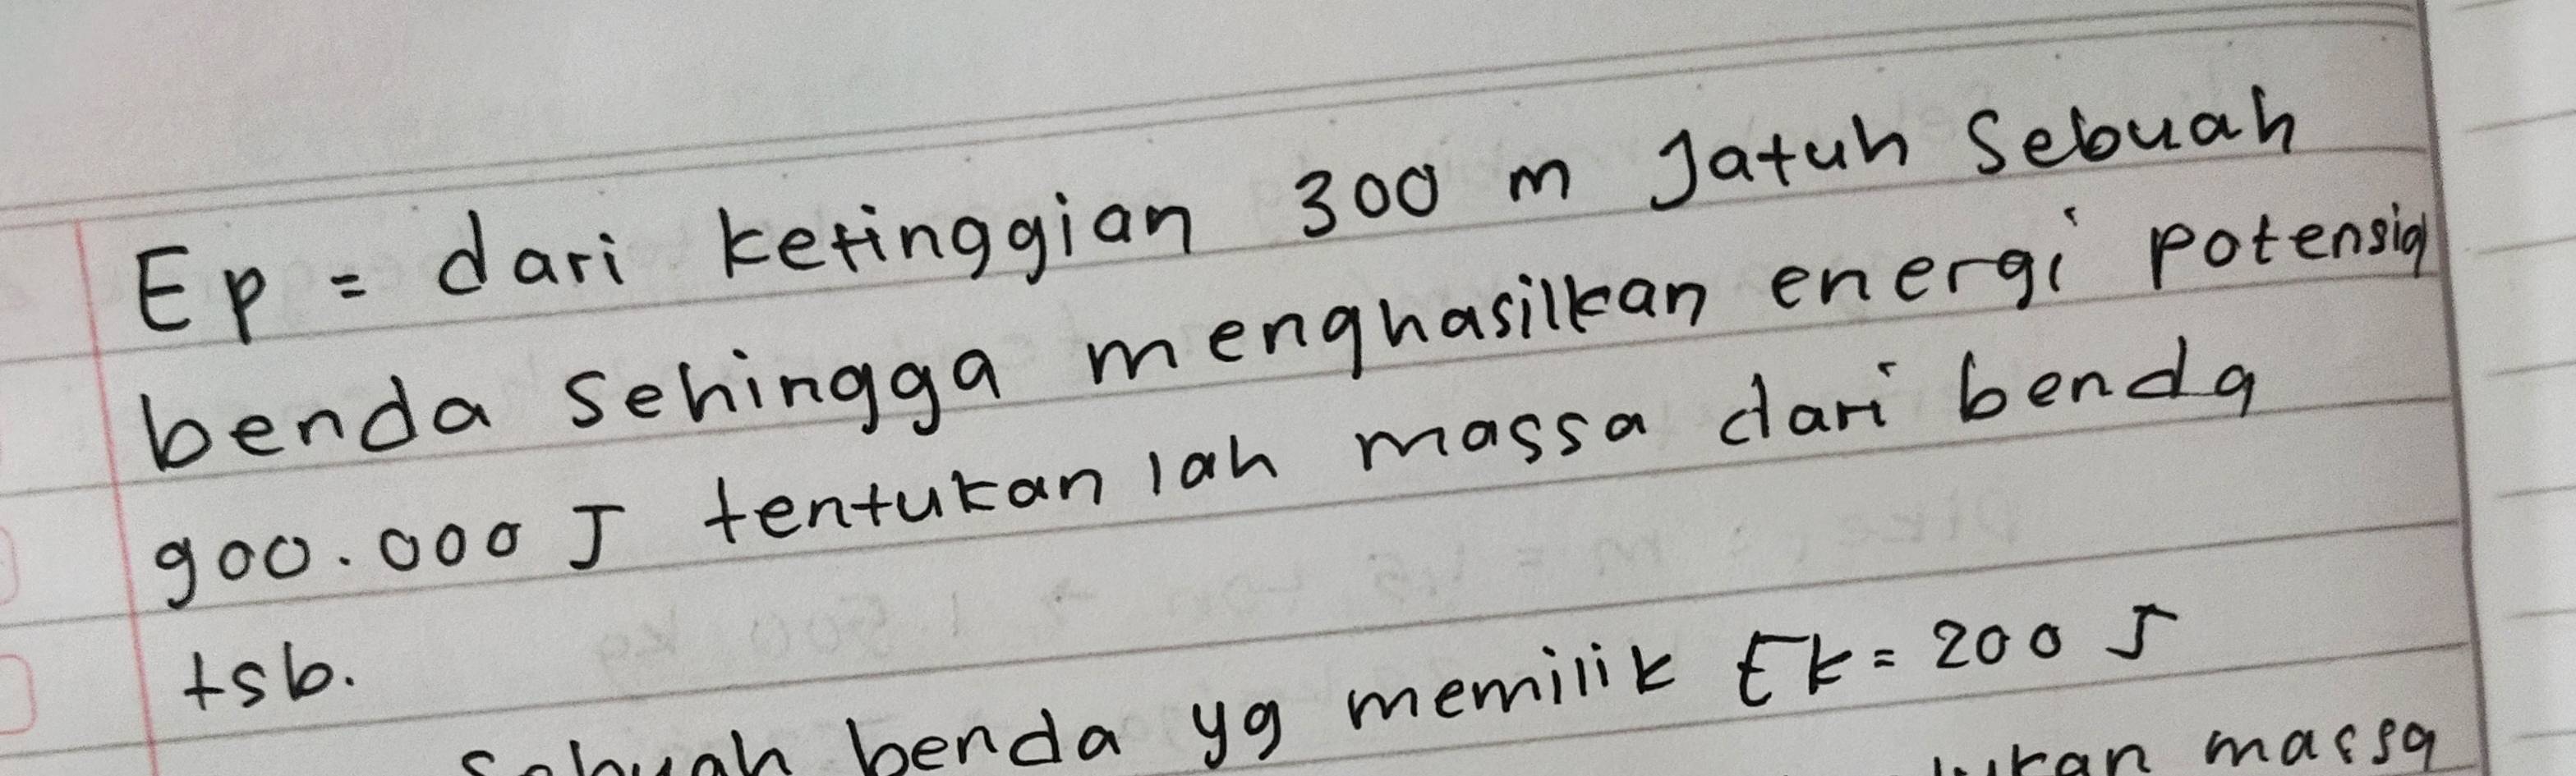 Ep = dari ketinggian 300 m Jatuh Sebuah
benda sehingga menghasilkan energi potensial
900.000 J tentukan lah massa dari benda
tsb.
Sebuah benda yg memilik Ek = 200 J
massa